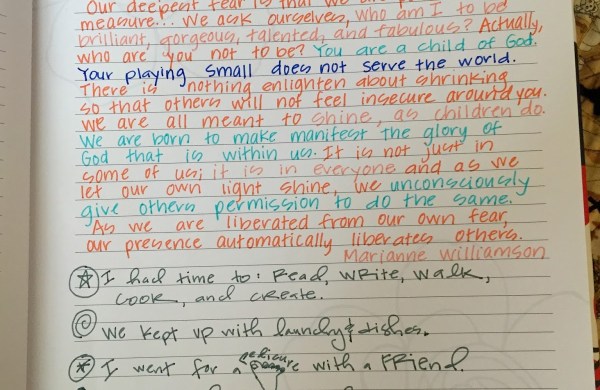 Our deepest fear is that we are p
measure... We ask ourselves, who am I to be
brilliant, gorgeous, talented, and fabulous? Actually,
who are you not to be? You are a child of God.
Your playing small does not serve the world.
There is nothing enlighten about shrinking
so that others will not feel insecure around you.
We are all meant to shine, as children do.
We are born to make manifest the glory of
God that is within us. It is not just in
some of us; it is in everyone and as we
let our own light shine, we unconsciously
give others permission to do the same.
As we are liberated from our own fear,
our presence automatically liberates others.
Marianne Williamson
I had time to: Read, write, walk,
cook, and create.
We kept up with laundry & dishes.
I went for a pedicure with a FRiend.